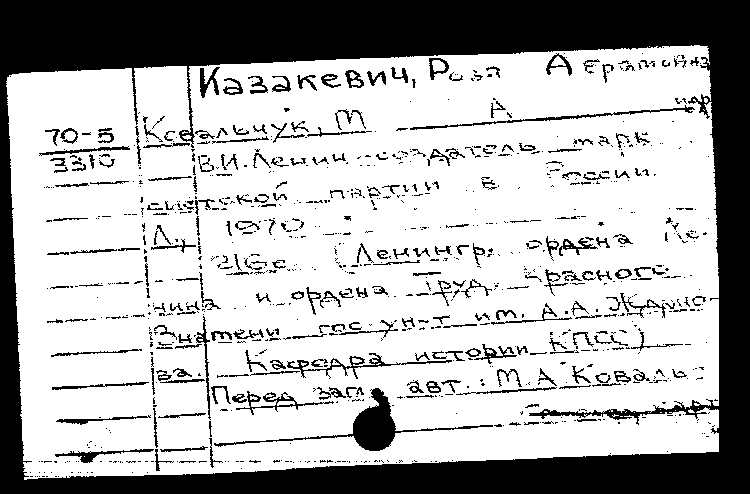 Казакевич, Роза А
70-5 Ковальчук, М А
3310 В.И.Ленин создатель марк
систской партии в России.
Л., 1970
216с (Ленингр. ордена Ле-
нина и ордена Труд. Красного
Знамени гос ун-т им. А.А.Ждано-
ва. Кафедра истории КПСС)
Перед загл авт.: М.А Коваль-